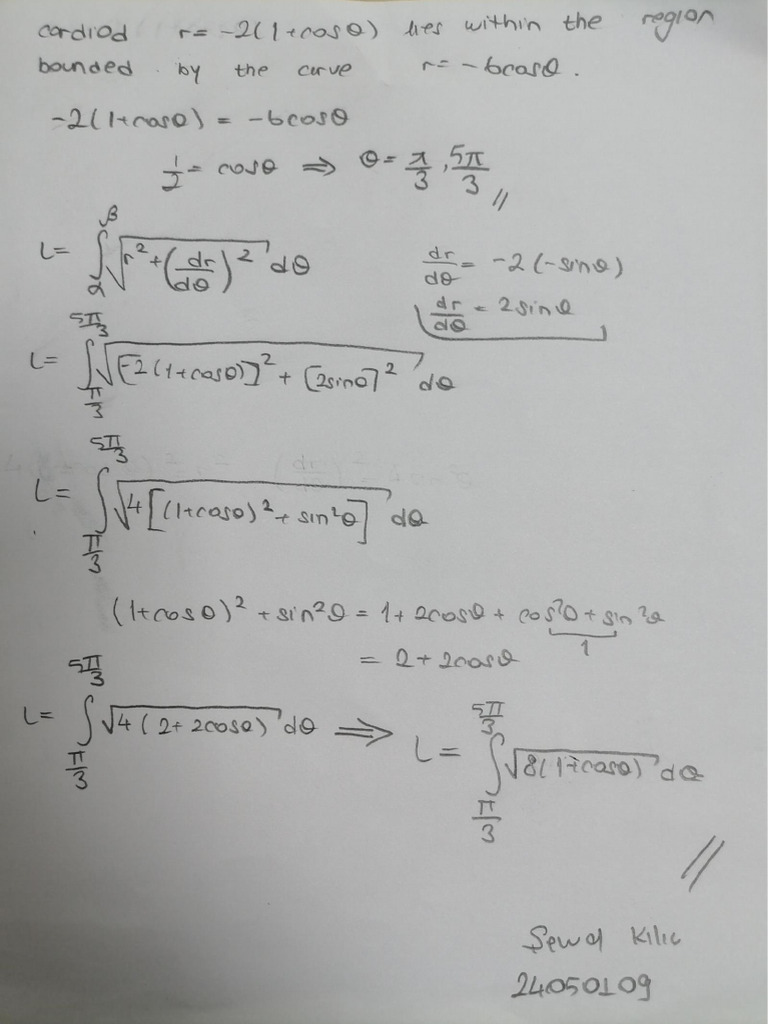 cardiod r= -2(1+cosθ) lies within the region
bounded by the curve r= -6cosθ.
-2(1+cosθ) = -6cosθ
1/2 = cosθ ⇒ θ= π/3, 5π/3 //
L= ∫_α^β √(r² + (dr/dθ)²) dθ dr/dθ = -2(-sinθ)
dr/dθ = 2sinθ
L= ∫_{π/3}^{5π/3} √([-2(1+cosθ)]² + [2sinθ]²) dθ
L= ∫_{π/3}^{5π/3} √(4[(1+cosθ)² + sin²θ]) dθ
(1+cosθ)² + sin²θ = 1+ 2cosθ + cos²θ + sin²θ
1
= 2+ 2cosθ
L= ∫_{π/3}^{5π/3} √(4(2+2cosθ)) dθ ⇒ L= ∫_{π/3}^{5π/3} √(8(1+cosθ)) dθ
//
Kilic
24050109